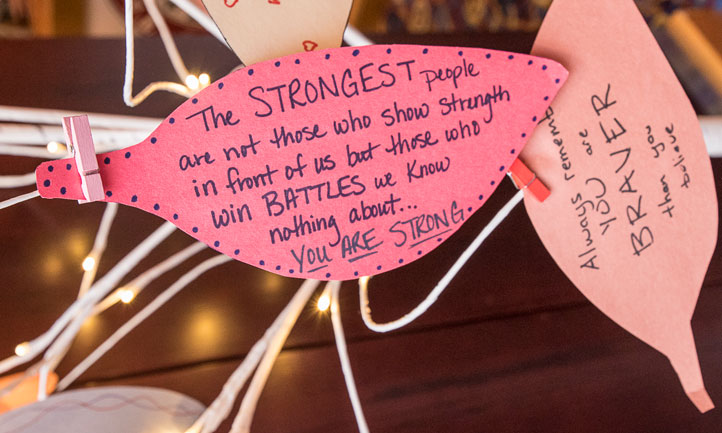 The STRONGEST people
are not those who show strength
in front of us but those who
win BATTLES we know
nothing about...
YOU ARE STRONG
Always remember
YOU are
BRAVER
then you
believe